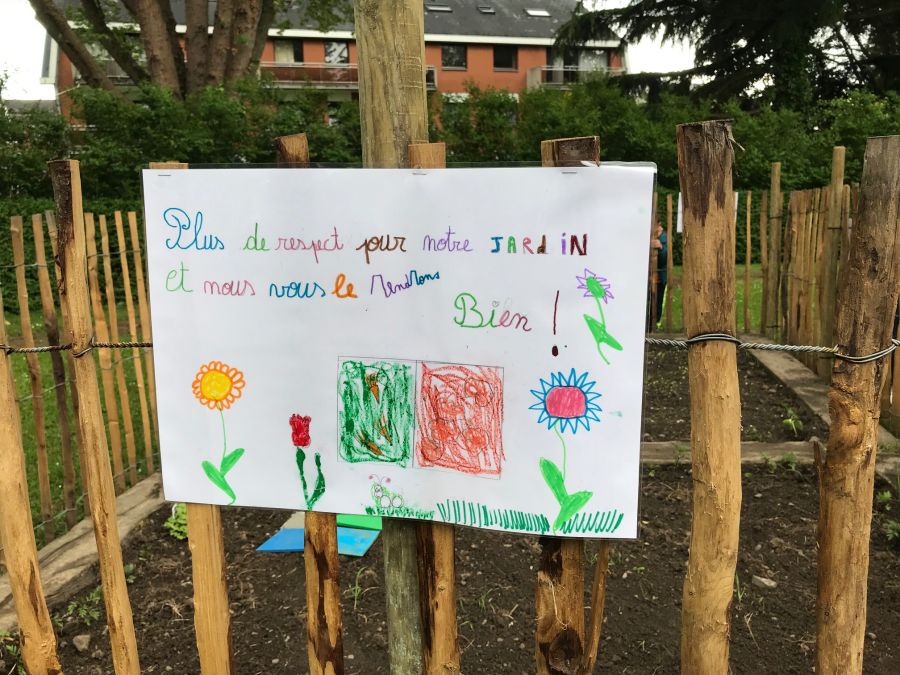 Plus de respect pour notre JARDIN
et nous vous le rendrons
Bien !